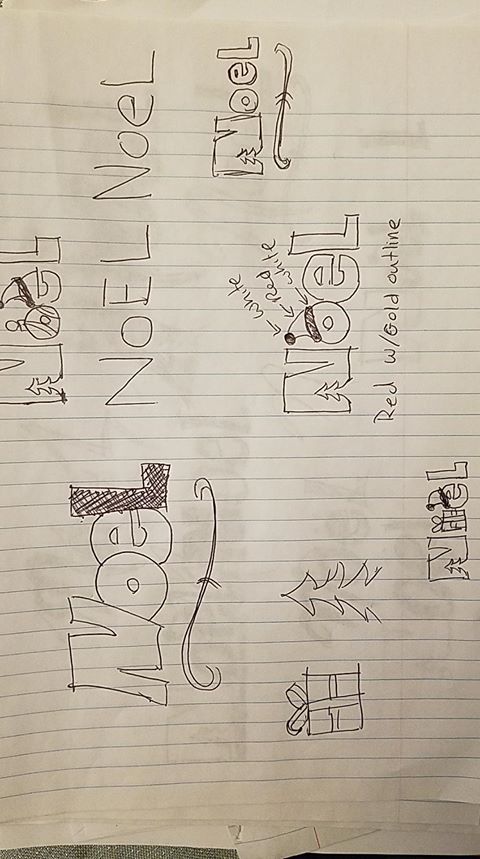 NoeL
NOEL NoeL
NoeL
NoeL
White
Red
White
NoeL
Red w/Gold outline
NoeL